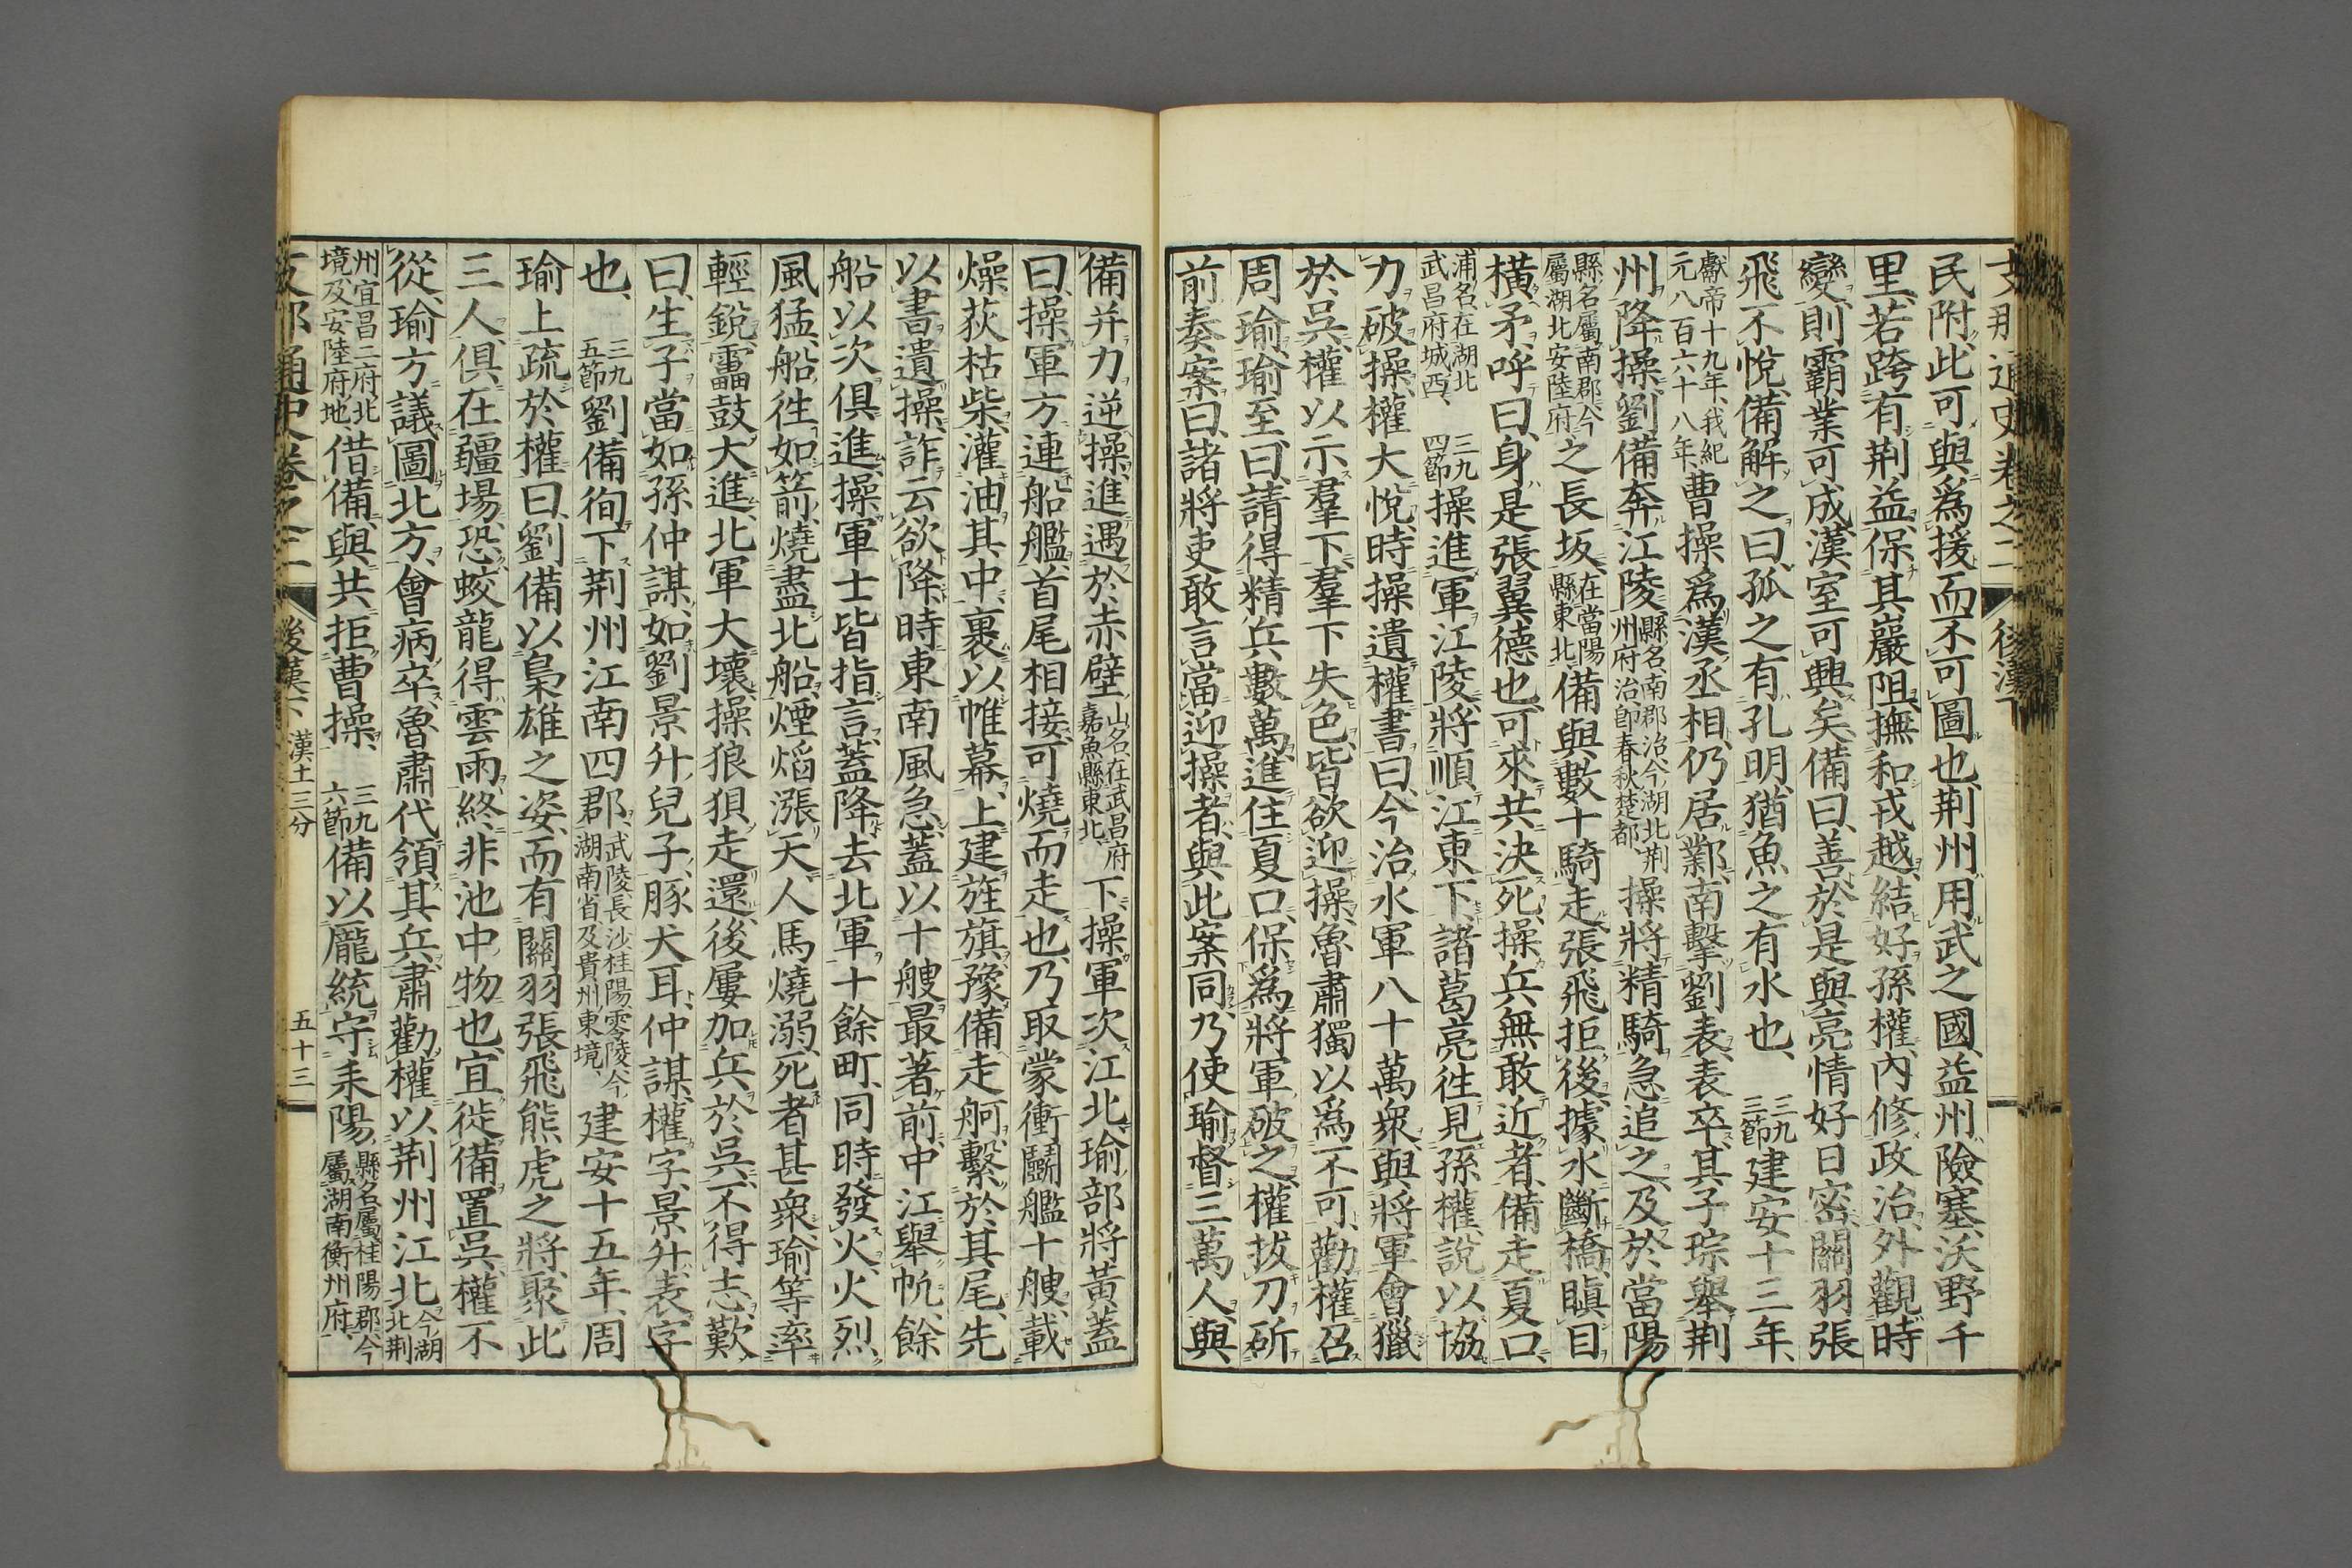 支那通史卷之二 後漢下
民附、此可與爲援、而不可圖也、荆州用武之國、益州險塞、沃野千
里、若跨有荆益、保其巖阻、撫和戎越、結好孫權、內修政治、外觀時
變、則霸業可成、漢室可興矣、備曰、善、於是與亮情好日密、關羽張
飛不悅、備解之曰、孤之有孔明、猶魚之有水也、三九三節建安十三年、
獻帝十九年、我紀元八百六十八年、曹操爲漢丞相、仍居鄴、南擊劉表、表卒、其子琮舉荆
州降操、劉備奔江陵、縣名南郡治今湖北荆州府治卽春秋楚都操將精騎急追之、及於當陽
縣名屬南郡今屬湖北安陸府之長坂、在當陽縣東北、備與數十騎走、張飛拒後、據水斷橋、瞋目
橫矛、呼曰、身是張翼德也、可來共決死、操兵無敢近者、備走夏口、
浦名在湖北武昌府城西、三九四節操進軍江陵、將順江東下、諸葛亮往見孫權、說以協
力破操、權大悅、時操遺權書曰、今治水軍八十萬衆、與將軍會獵
於吳、權以示羣下、羣下失色、皆欲迎操、魯肅獨以爲不可、勸權召
周瑜、瑜至曰、請得精兵數萬、進住夏口、保爲將軍破之、權拔刀斫
前奏案曰、諸將吏敢言當迎操者、與此案同、乃使瑜督三萬人、與
備并力逆操、進遇於赤壁、山名在武昌府嘉魚縣東北、下、操軍次江北、瑜部將黃蓋
曰、操軍方連船艦、首尾相接、可燒而走也、乃取蒙衝鬭艦十艘、載
燥荻枯柴、灌油其中、裹以帷幕、上建旌旗、豫備走舸、繫於其尾、先
以書遺操、詐云欲降、時東南風急、蓋以十艘最著前、中江舉帆、餘
船以次俱進、操軍士皆指言、蓋降、去北軍十餘町、同時發火、火烈
風猛、船往如箭、燒盡北船、煙焰漲天、人馬燒溺、死者甚衆、瑜等率
輕銳、靁鼓大進、北軍大壞、操狼狽走還、後屢加兵於吳、不得志、歎
曰、生子當如孫仲謀、如劉景升兒子、豚犬耳、仲謀、權字、景升、表字
也、三九五節劉備徇下荆州江南四郡、武陵長沙桂陽零陵今湖南省及貴州東境、建安十五年、周
瑜上疏於權曰、劉備以梟雄之姿、而有關羽張飛熊虎之將、聚此
三人、俱在疆場、恐蛟龍得雲雨、終非池中物也、宜徙備置吳、權不
從、瑜方議圖北方、會病卒、魯肅代領其兵、肅勸權以荆州江北今湖北荆
州宜昌二府北境及安陸府地借備、與共拒曹操、三九六節備以龐統守耒陽、縣名屬桂陽郡今屬湖南衡州府、
支那通史卷之二 後漢下 漢土三分 五十三